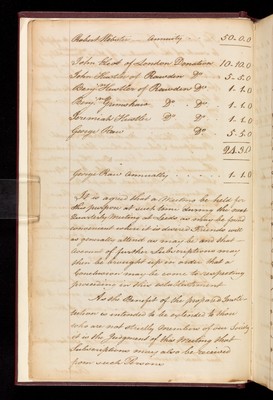 Robert Webster annuity 50.0.0
John Hust of London Donation 10.10.0
John Hustler of Rawden Do 5-5.0
Benjn Hustler of Rawden Do 1.1.0
Benj Grimshaw Do Do 1.1.0
Jeremiah Hustler Do Do 1.1.0
George Do 5.5.0
24.3.0
George annually 1.1.0
It is agreed that a Meeting be held for
this purpose at such time during the next
Quarterly Meeting at Leeds as may be found
convenient when it is desired Friends will
as generally attend as may be and that
account of further Subscriptions may
then be brought up in order that a
Conclusion may be come to respecting
proceeding in this establishment
As the Benefit of the proposed Insti-
tution is intended to be extended to those
who are not strictly Members of our Society
it is the Judgment of this Meeting that
Subscriptions may also be received
from such Persons